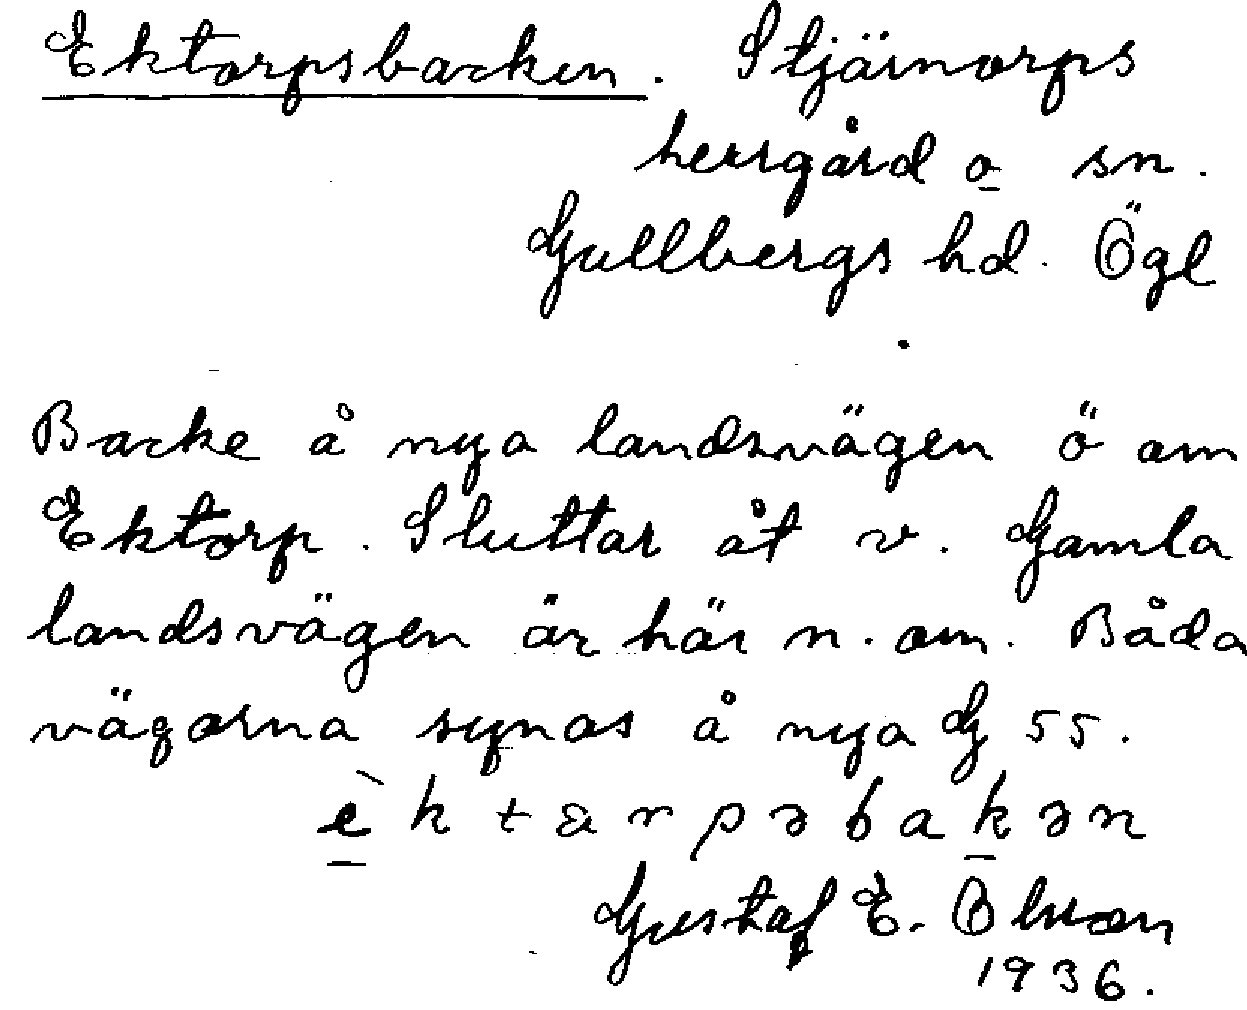 Ektorpsbacken. Stjärnorps
herrgård o sn.
Gullbergs hd. Ögl
Backe å nya landsvägen ö om
Ektorp. Sluttar åt v. Gamla
landsvägen är här n. om. Båda
vägarna synas å nya G 55.
Gustaf E. Olsson
1936.